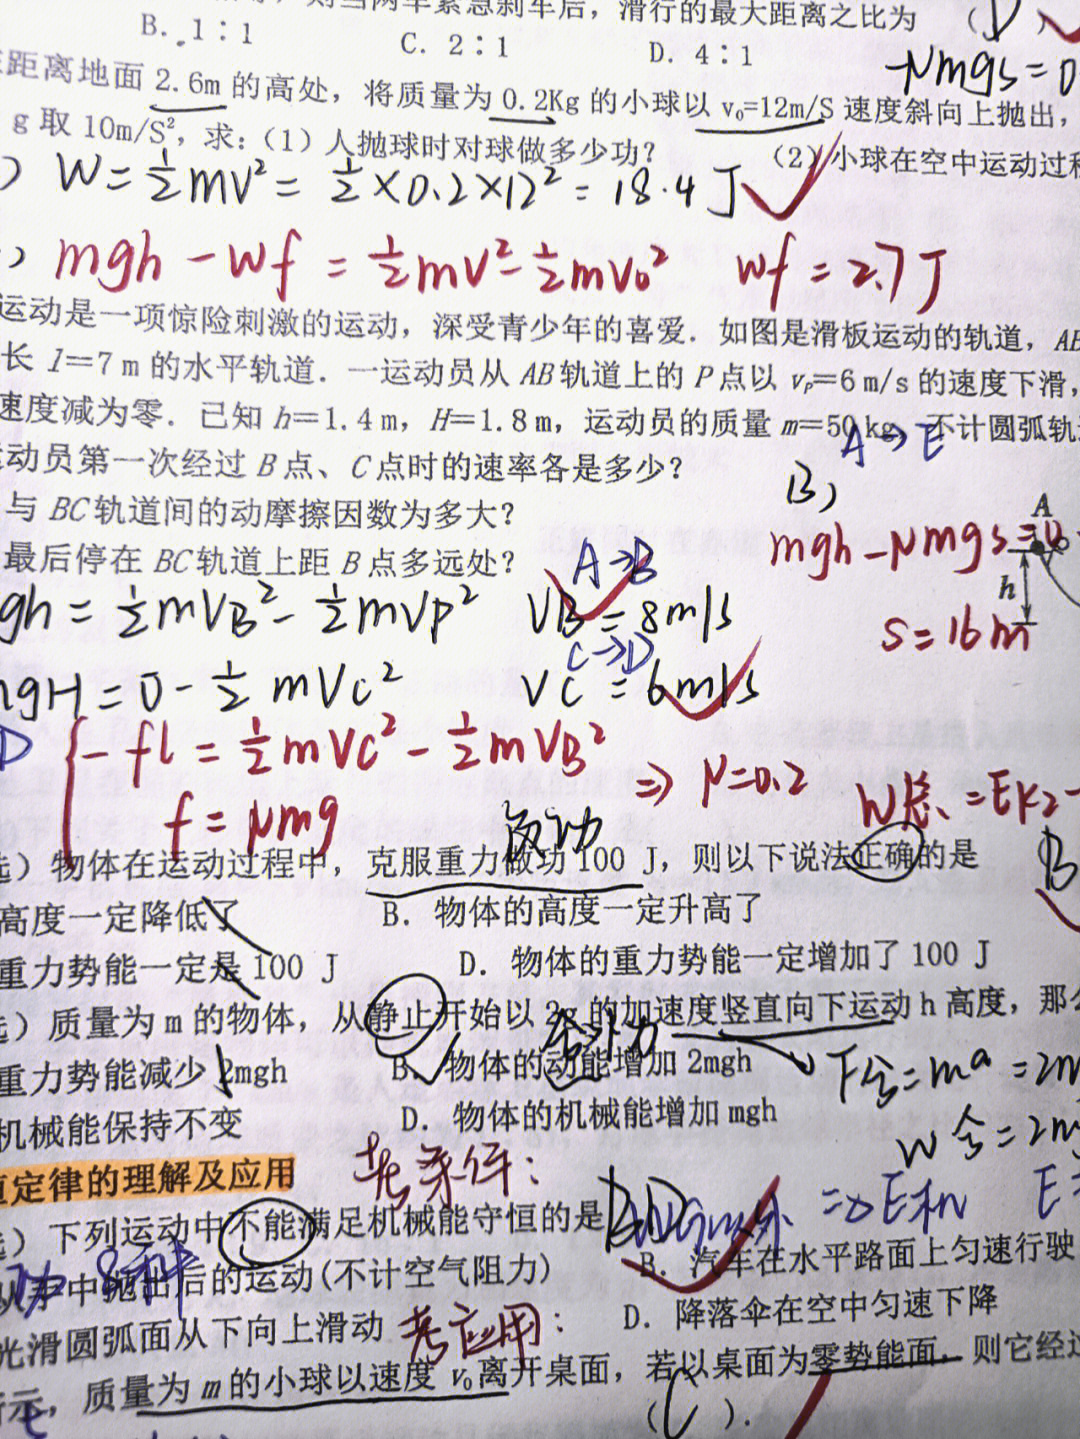 则当两车紧急刹车后，滑行的最大距离之比为 （D）
B. 1：1 C. 2：1 D. 4：1
-μmgs=0
距离地面 2.6m 的高处，将质量为 0.2Kg 的小球以 v₀=12m/S 速度斜向上抛出，
g 取 10m/S²，求：（1）人抛球时对球做多少功？ （2）小球在空中运动过程
) W=½mv²=½×0.2×12²=18.4J
) mgh-Wf=½mv²-½mv₀² Wf=2.7J
运动是一项惊险刺激的运动，深受青少年的喜爱．如图是滑板运动的轨道，AB
长 l＝7 m 的水平轨道．一运动员从 AB 轨道上的 P 点以 vP＝6 m/s 的速度下滑，
速度减为零．已知 h＝1.4 m，H＝1.8 m，运动员的质量 m＝50 kg，不计圆弧轨
A→E
动员第一次经过 B 点、C 点时的速率各是多少？
B)
与 BC 轨道间的动摩擦因数为多大？
A
mgh-μmgs=0
最后停在 BC 轨道上距 B 点多远处？ A→B
h
gh=½mVB²-½mVP² VB=8m/s
s=16m
C→D
mgH=0-½mVc² Vc=6m/s
D -fL=½mVC²-½mVB² ⇒ μ=0.2
f=μmg
W总=EK2-
选）物体在运动过程中，克服重力做功 100 J，则以下说法正确的是 B
高度一定降低了 B. 物体的高度一定升高了
重力势能一定是 100 J D. 物体的重力势能一定增加了 100 J
选）质量为 m 的物体，从静止开始以 2g 的加速度竖直向下运动 h 高度，那么
合外力
重力势能减少 2mgh B. 物体的动能增加 2mgh F合=ma=2m
机械能保持不变 D. 物体的机械能增加 mgh
W合=2mg
定律的理解及应用 考条件：
选）下列运动中不能满足机械能守恒的是 BD
⇒E机 E=
从手中抛出后的运动(不计空气阻力) B. 汽车在水平路面上匀速行驶
光滑圆弧面从下向上滑动 考应用： D. 降落伞在空中匀速下降
所示，质量为 m 的小球以速度 v₀ 离开桌面，若以桌面为零势能面，则它经过
（C）．